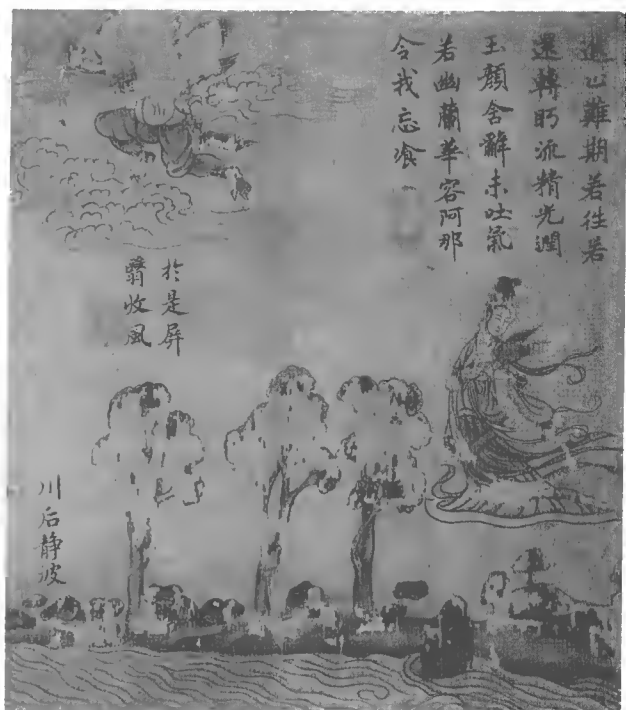 進止難期若往若
還轉眄流精光潤
玉顏含辭未吐氣
若幽蘭華容阿那
令我忘湌
於是屏
翳收風
川后静波